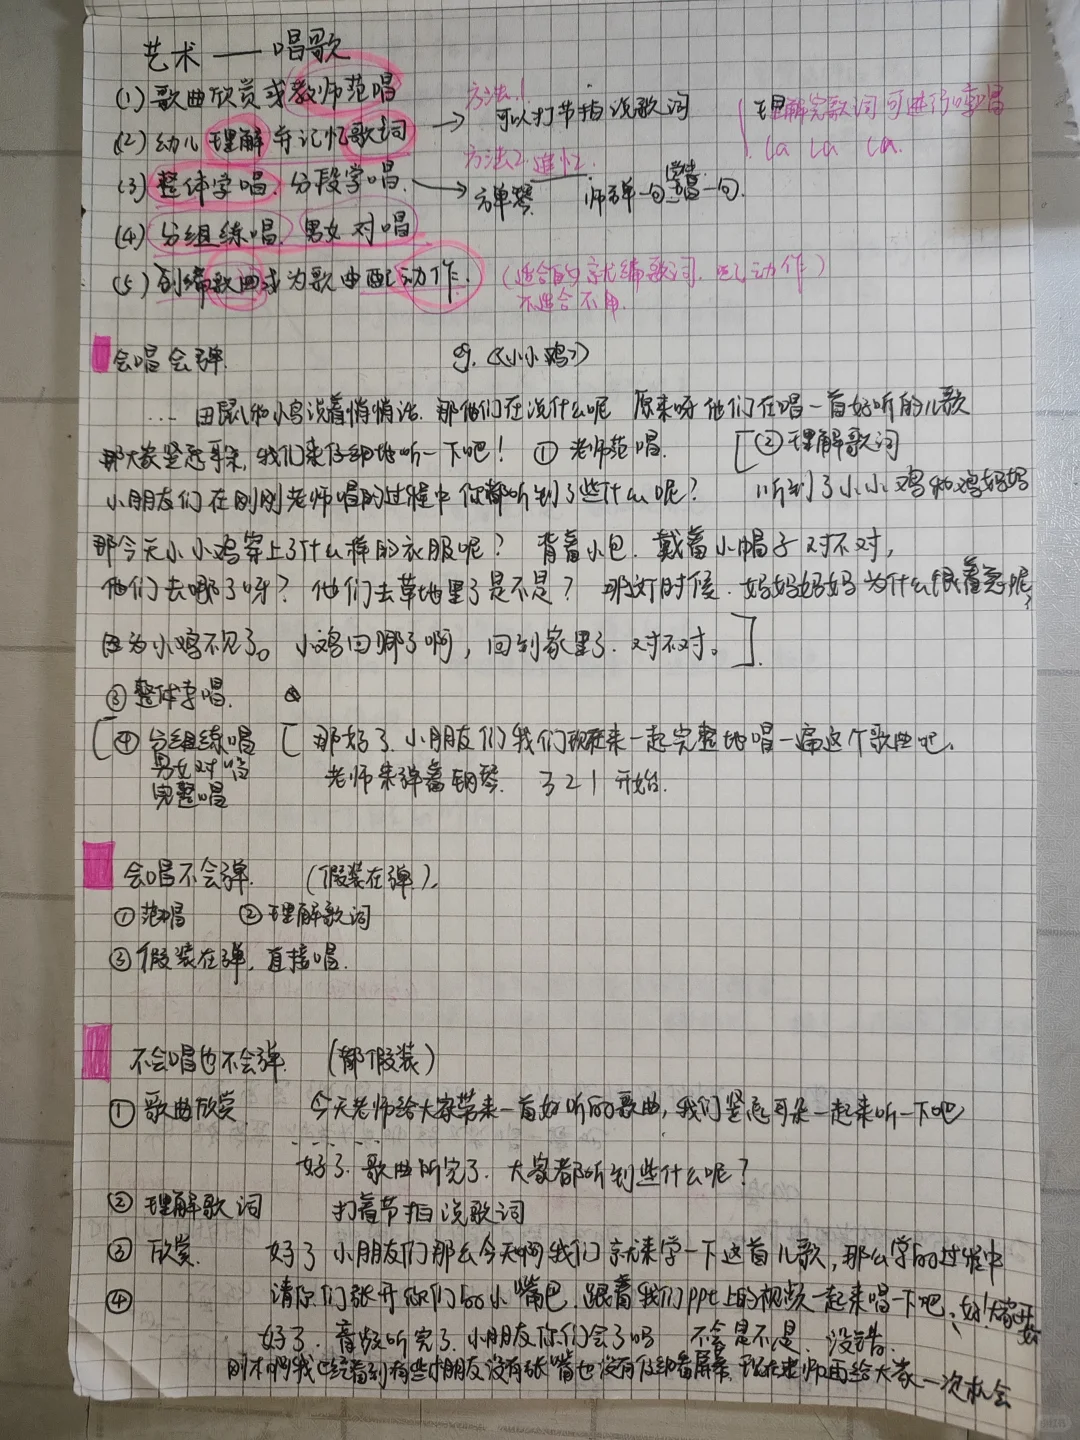 艺术 —— 唱歌
(1) 歌曲欣赏或教师范唱
(2) 幼儿理解并记忆歌词 → 方法1 可以打节拍说歌词
理解完歌词可进行哼唱
la la la.
(3) 整体学唱. 分段学唱. → 方法2
弹琴. 师弹一句 唱一句.
(4) 分组练唱. 男女对唱
(5) 创编歌曲或为歌曲配动作. (适合的就编歌词. 配动作)
不适合不用.
会唱会弹. eg.《小小鸡》
... 田鼠和小鸟说着悄悄话. 那他们在说什么呢 原来呀他们在唱一首好听的儿歌
那大家竖起耳朵, 我们来仔细地听一下吧! ① 老师范唱. [② 理解歌词
小朋友们在刚刚老师唱的过程中你都听到了些什么呢? 听到了小小鸡和鸡妈妈
那今天小小鸡穿上了什么样的衣服呢? 背着小包. 戴着小帽子对不对,
他们去哪了呀? 他们去草地里了是不是? 那这时候. 妈妈妈妈为什么很着急呢,
因为小鸡不见了。 小鸡回哪了啊, 回到家里了. 对不对。]
③ 整体学唱.
[④ 分组练唱 [那好了. 小朋友们我们现在来一起完整地唱一遍这个歌曲吧.
男女对唱 老师来弹着钢琴. 3 2 1 开始.
完整唱
会唱不会弹. (假装在弹).
① 范唱 ② 理解歌词
③ 假装在弹, 直接唱.
不会唱也不会弹. (都假装)
① 歌曲欣赏 今天老师给大家带来一首好听的歌曲, 我们竖起耳朵一起来听一下吧
......
好了. 歌曲听完了. 大家都听到些什么呢?
② 理解歌词 打着节拍说歌词
③ 欣赏. 好了 小朋友们那么今天啊我们就来学一下这首儿歌, 那么学的过程中
④ 请你们张开你们的小嘴巴. 跟着我们ppt上的视频一起来唱一下吧.
好了. 音频听完了. 小朋友你们会了吗 不会是不是. 没错.
刚才啊我已经看到有些小朋友没有张嘴也没有仔细看屏幕, 现在老师再给大家一次机会